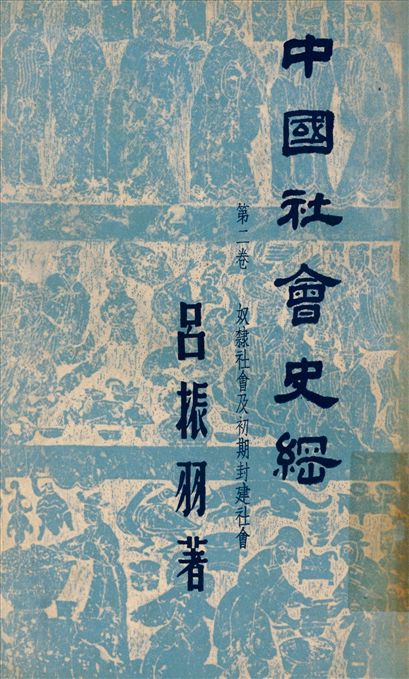 中國社會史綱
第二卷 奴隸社會及初期封建社會
呂振羽著